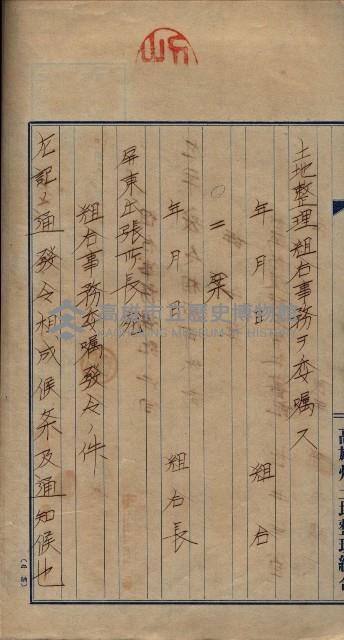 土地整理組合事務ヲ委嘱ス
年月日　組合
〇二案
年月日　組合長
屏東出張所長宛
組合事務委嘱発令ノ件
左記ノ通発令相成候条及通知候也
高雄市立歷史博物館
KAOHSIUNG MUSEUM OF HISTORY